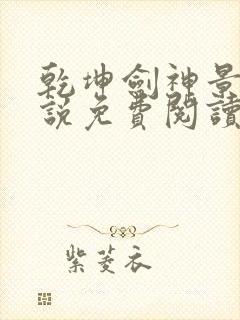 乾坤劍神景
說免費閱讀
紫菱衣